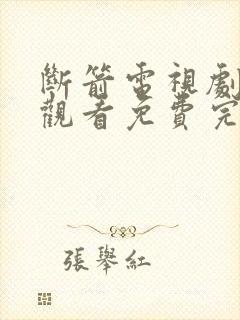 斷箭電視劇
觀看免費完
張舉紅